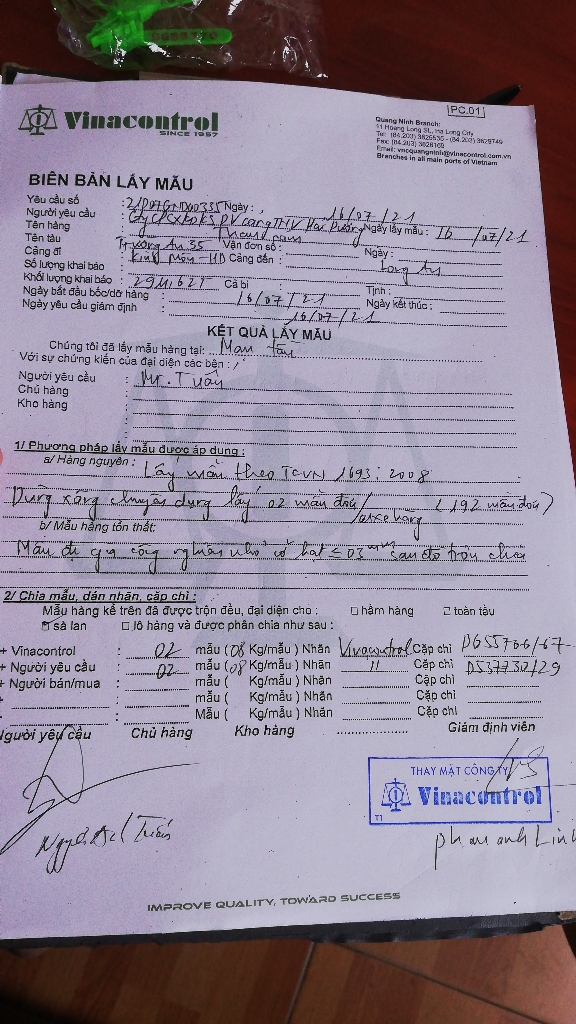 PC.01
Vinacontrol
SINCE 1957
Quang Ninh Branch:
11 Hoang Long St., Ha Long City
Tel: (84.203) 3826535 - (84.203) 3629749
Fax: (84.203) 3826169
Email: vncquangninh@vinacontrol.com.vn
Branches in all main ports of Vietnam
BIÊN BẢN LẤY MẪU
Yêu cầu số : Ngày: 16/07/21
Người yêu cầu : Ngày lấy mẫu : 16/07/21
Tên hàng : Than cám
Tên tàu : Trường An 35 Vận đơn số : Ngày :
Cảng đi : Kinh Môn - HD Cảng đến : Long An
Số lượng khai báo :
Khối lượng khai báo : Cả bì : Tịnh :
Ngày bắt đầu bốc/dỡ hàng : 16/07/21 Ngày kết thúc :
Ngày yêu cầu giám định : 16/07/21
KẾT QUẢ LẤY MẪU
Chúng tôi đã lấy mẫu hàng tại:
Với sự chứng kiến của đại diện các bên :
Người yêu cầu : Mr. Tuấn
Chủ hàng :
Kho hàng :
1/ Phương pháp lấy mẫu được áp dụng :
a/ Hàng nguyên : Lấy mẫu theo TCVN 1693: 2008
Dùng xẻng chuyên dụng lấy 02 mẫu đơn/ (192 mẫu đơn)
b/ Mẫu hàng tổn thất:
Mẫu đc gia công nghiền nhỏ cỡ hạt ≤ 03 mm sau đó trộn chia
2/ Chia mẫu, dán nhãn, cặp chì :
Mẫu hàng kể trên đã được trộn đều, đại diện cho : □ hầm hàng □ toàn tàu
☑ sà lan □ lô hàng và được phân chia như sau :
+ Vinacontrol : 02 mẫu (08 Kg/mẫu ) Nhãn Vinacontrol Cặp chì D655766/67
+ Người yêu cầu : 02 mẫu (08 Kg/mẫu ) Nhãn 11 Cặp chì D537730/29
+ Người bán/mua : mẫu ( Kg/mẫu ) Nhãn Cặp chì
+ : mẫu ( Kg/mẫu ) Nhãn Cặp chì
- : Mẫu ( Kg/mẫu ) Nhãn Cặp chì
Người yêu cầu Chủ hàng Kho hàng Giám định viên
THAY MẶT CÔNG TY
Vinacontrol
T1
Phạm Anh Linh
IMPROVE QUALITY, TOWARD SUCCESS